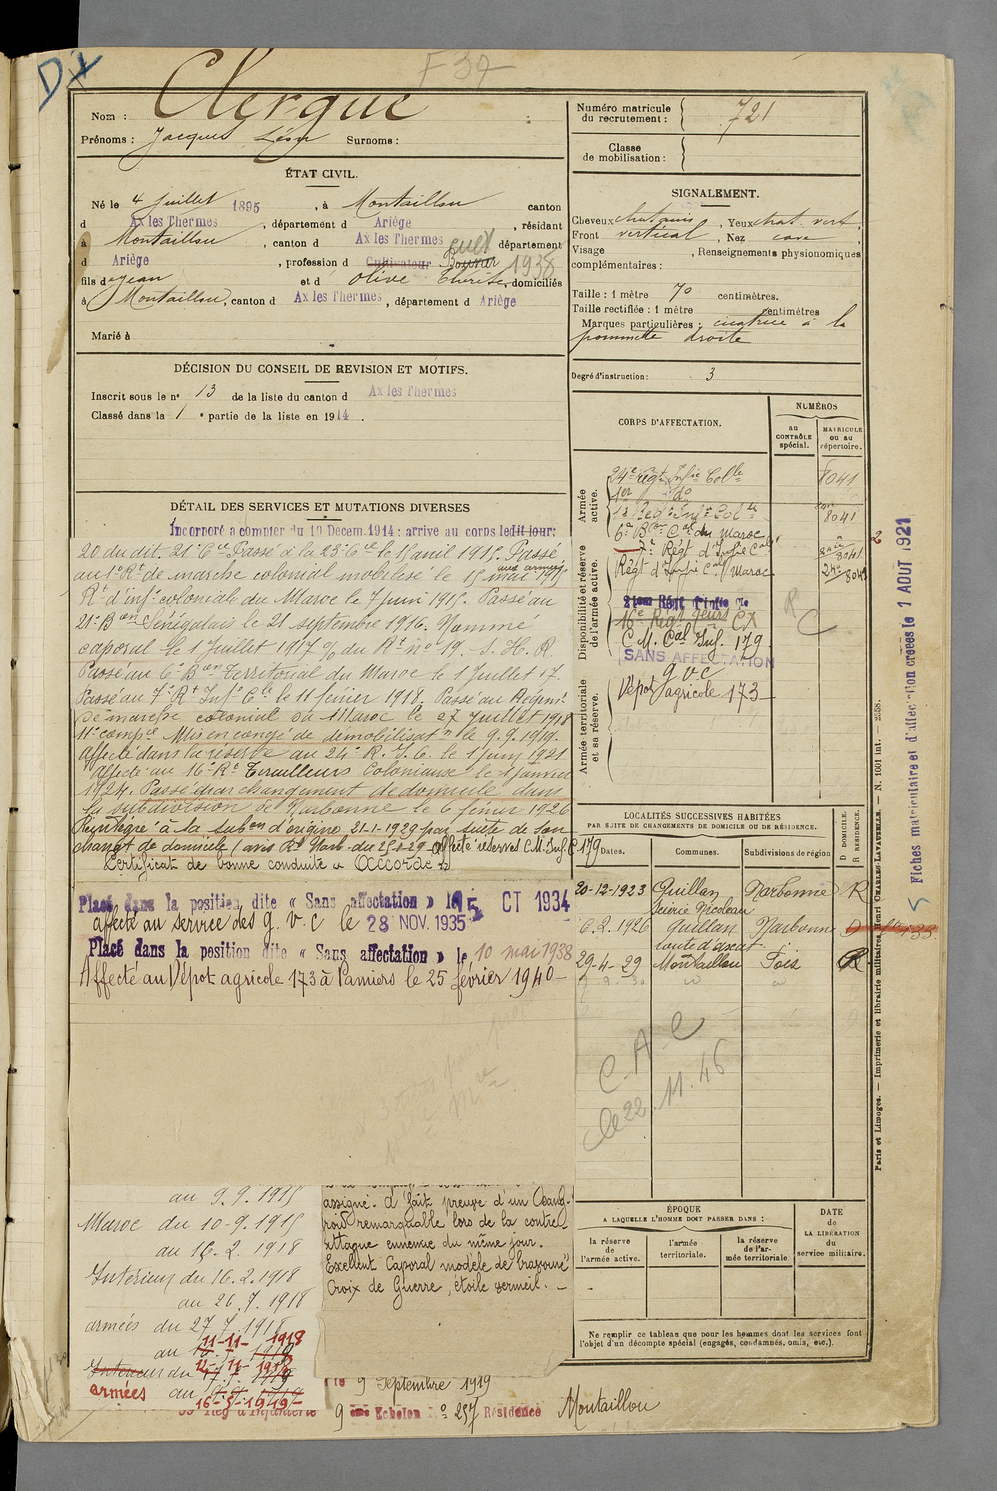 F 37
Nom : Clergue
Prénoms : Jacques Léon Surnoms :
ÉTAT CIVIL.
Né le 4 juillet 1895, à Montaillou canton
d Ax les Thermes, département d Ariège, résidant
à Montaillou, canton d Ax les Thermes département
d Ariège, profession d Cultivateur Bouvier cult 1938
fils d Jean et d Olive Thérèse, domiciliés
à Montaillou, canton d Ax les Thermes, département d Ariège
Marié à
DÉCISION DU CONSEIL DE REVISION ET MOTIFS.
Inscrit sous le n° 13 de la liste du canton d Ax les Thermes
Classé dans la 1e partie de la liste en 1914.
DÉTAIL DES SERVICES ET MUTATIONS DIVERSES
Incorporé a compter du 19 Decem. 1914 : arrive au corps ledit jour:
20 du dit. 21e Cie Passé à la 23e Cie le 1r avril 1915. Passé
au 1er Rt de marche colonial mobilisé le 15 mai 1915 aux armées
Rt d'infie coloniale du Maroc le 7 juin 1915. Passé au
21e Bon Sénégalais le 21 septembre 1916. Nommé
caporal le 1 juillet 1917 % du Rt no 19. S. H. R.
Passé au 6e Bon Territorial du Maroc le 1 juillet 17.
Passé au 7e Rt Infie Cle le 11 février 1918. Passé au Régimt
de marche colonial du Maroc le 27 juillet 1918
11e compie Mis en congé de démobilisaton le 9.9.1919.
affecté dans la réserve au 24e R. I. C. le 1 juin 1921
Affecté au 16e Rt Tirailleurs Coloniaux le 1 janvier
1924. Passé par changement de domicile dans
la subdivision de Narbonne le 6 février 1926
Réintégré à la subon d'origine 21-1-1929 par suite de son
changt de domicile (avis Rt Narb. du 25-2-29 Affecté réserves C.M. Inf. C 179
Certificat de bonne conduite « Accordé »
Placé dans la position dite « Sans affectation » le 15 OCT 1934
affecté au service des g. v. c le 28 NOV. 1935
Placé dans la position dite « Sans affectation » le 10 mai 1938
Affecté au Dépot agricole 173 à Pamiers le 25 février 1940
au 9.9.1915
Maroc du 10-9.1915
au 16.2.1918
Intérieur du 16.2.1918
au 26.7.1918
armées du 27.7.1918
au 11-11-1918
Intérieur du 12-11-1918
armées au
16-5-1919
assigné. A fait preuve d'un Sang-
froid remarquable lors de la contre-
attaque ennemie du même jour.
Exellent Caporal modèle de bravoure"
Croix de Guerre, étoile vermeil.
le 9 Septembre 1919
Reg d'Infanterie 9 ème Echelon No 257 Résidence Montaillou
Numéro matricule
du recrutement : 721
Classe
de mobilisation :
SIGNALEMENT.
Cheveux chatains, Yeux chat. vert,
Front vertical, Nez cave,
Visage , Renseignements physionomiques
complémentaires :
Taille : 1 mètre 70 centimètres.
Taille rectifiée : 1 mètre centimètres
Marques particulières : cicatrice à la
pommette droite
Degré d'instruction : 3
CORPS D'AFFECTATION.
NUMÉROS
AU CONTRÔLE spécial.
MATRICULE ou au répertoire.
Armée active.
24e Régt Infie Colle 8041
1er do
Regt Infie Colle 8041
6e Bon Cal du Maroc
7e Régt d'Infie Cal 8041
Régt d'Infie Cal Maroc 8041
Disponibilité et réserve de l'armée active.
16e Régt CX
C. M. Cal Inf. 179
SANS AFFECTATION
g v c
Dépot agricole 173
R C
Armée territoriale et sa réserve.
LOCALITÉS SUCCESSIVES HABITÉES
PAR SUITE DE CHANGEMENTS DE DOMICILE OU DE RÉSIDENCE.
Dates. Communes. Subdivisions de région D DOMICILE. R RÉSIDENCE.
20-12-1923 Quillan Narbonne R
Scierie Nicoleau
6.2.1926 Quillan Narbonne D
route d'axat
29-4-29 Montaillou Foix R
C. A. C
le 22.11.46
ÉPOQUE
A LAQUELLE L'HOMME DOIT PASSER DANS :
la réserve de l'armée active.
l'armée territoriale.
la réserve de l'armée territoriale
DATE de LA LIBÉRATION du service militaire.
Ne remplir ce tableau que pour les hommes dont les services font
l'objet d'un décompte spécial (engagés, condamnés, omis, etc.).
Paris et Limoges. — Imprimerie et librairie militaires Henri CHARLES-LAVAUZELLE. — N. 1001 int. — 2358.
Fiches matriculaire et d'affectation créées le 1 AOUT 1921